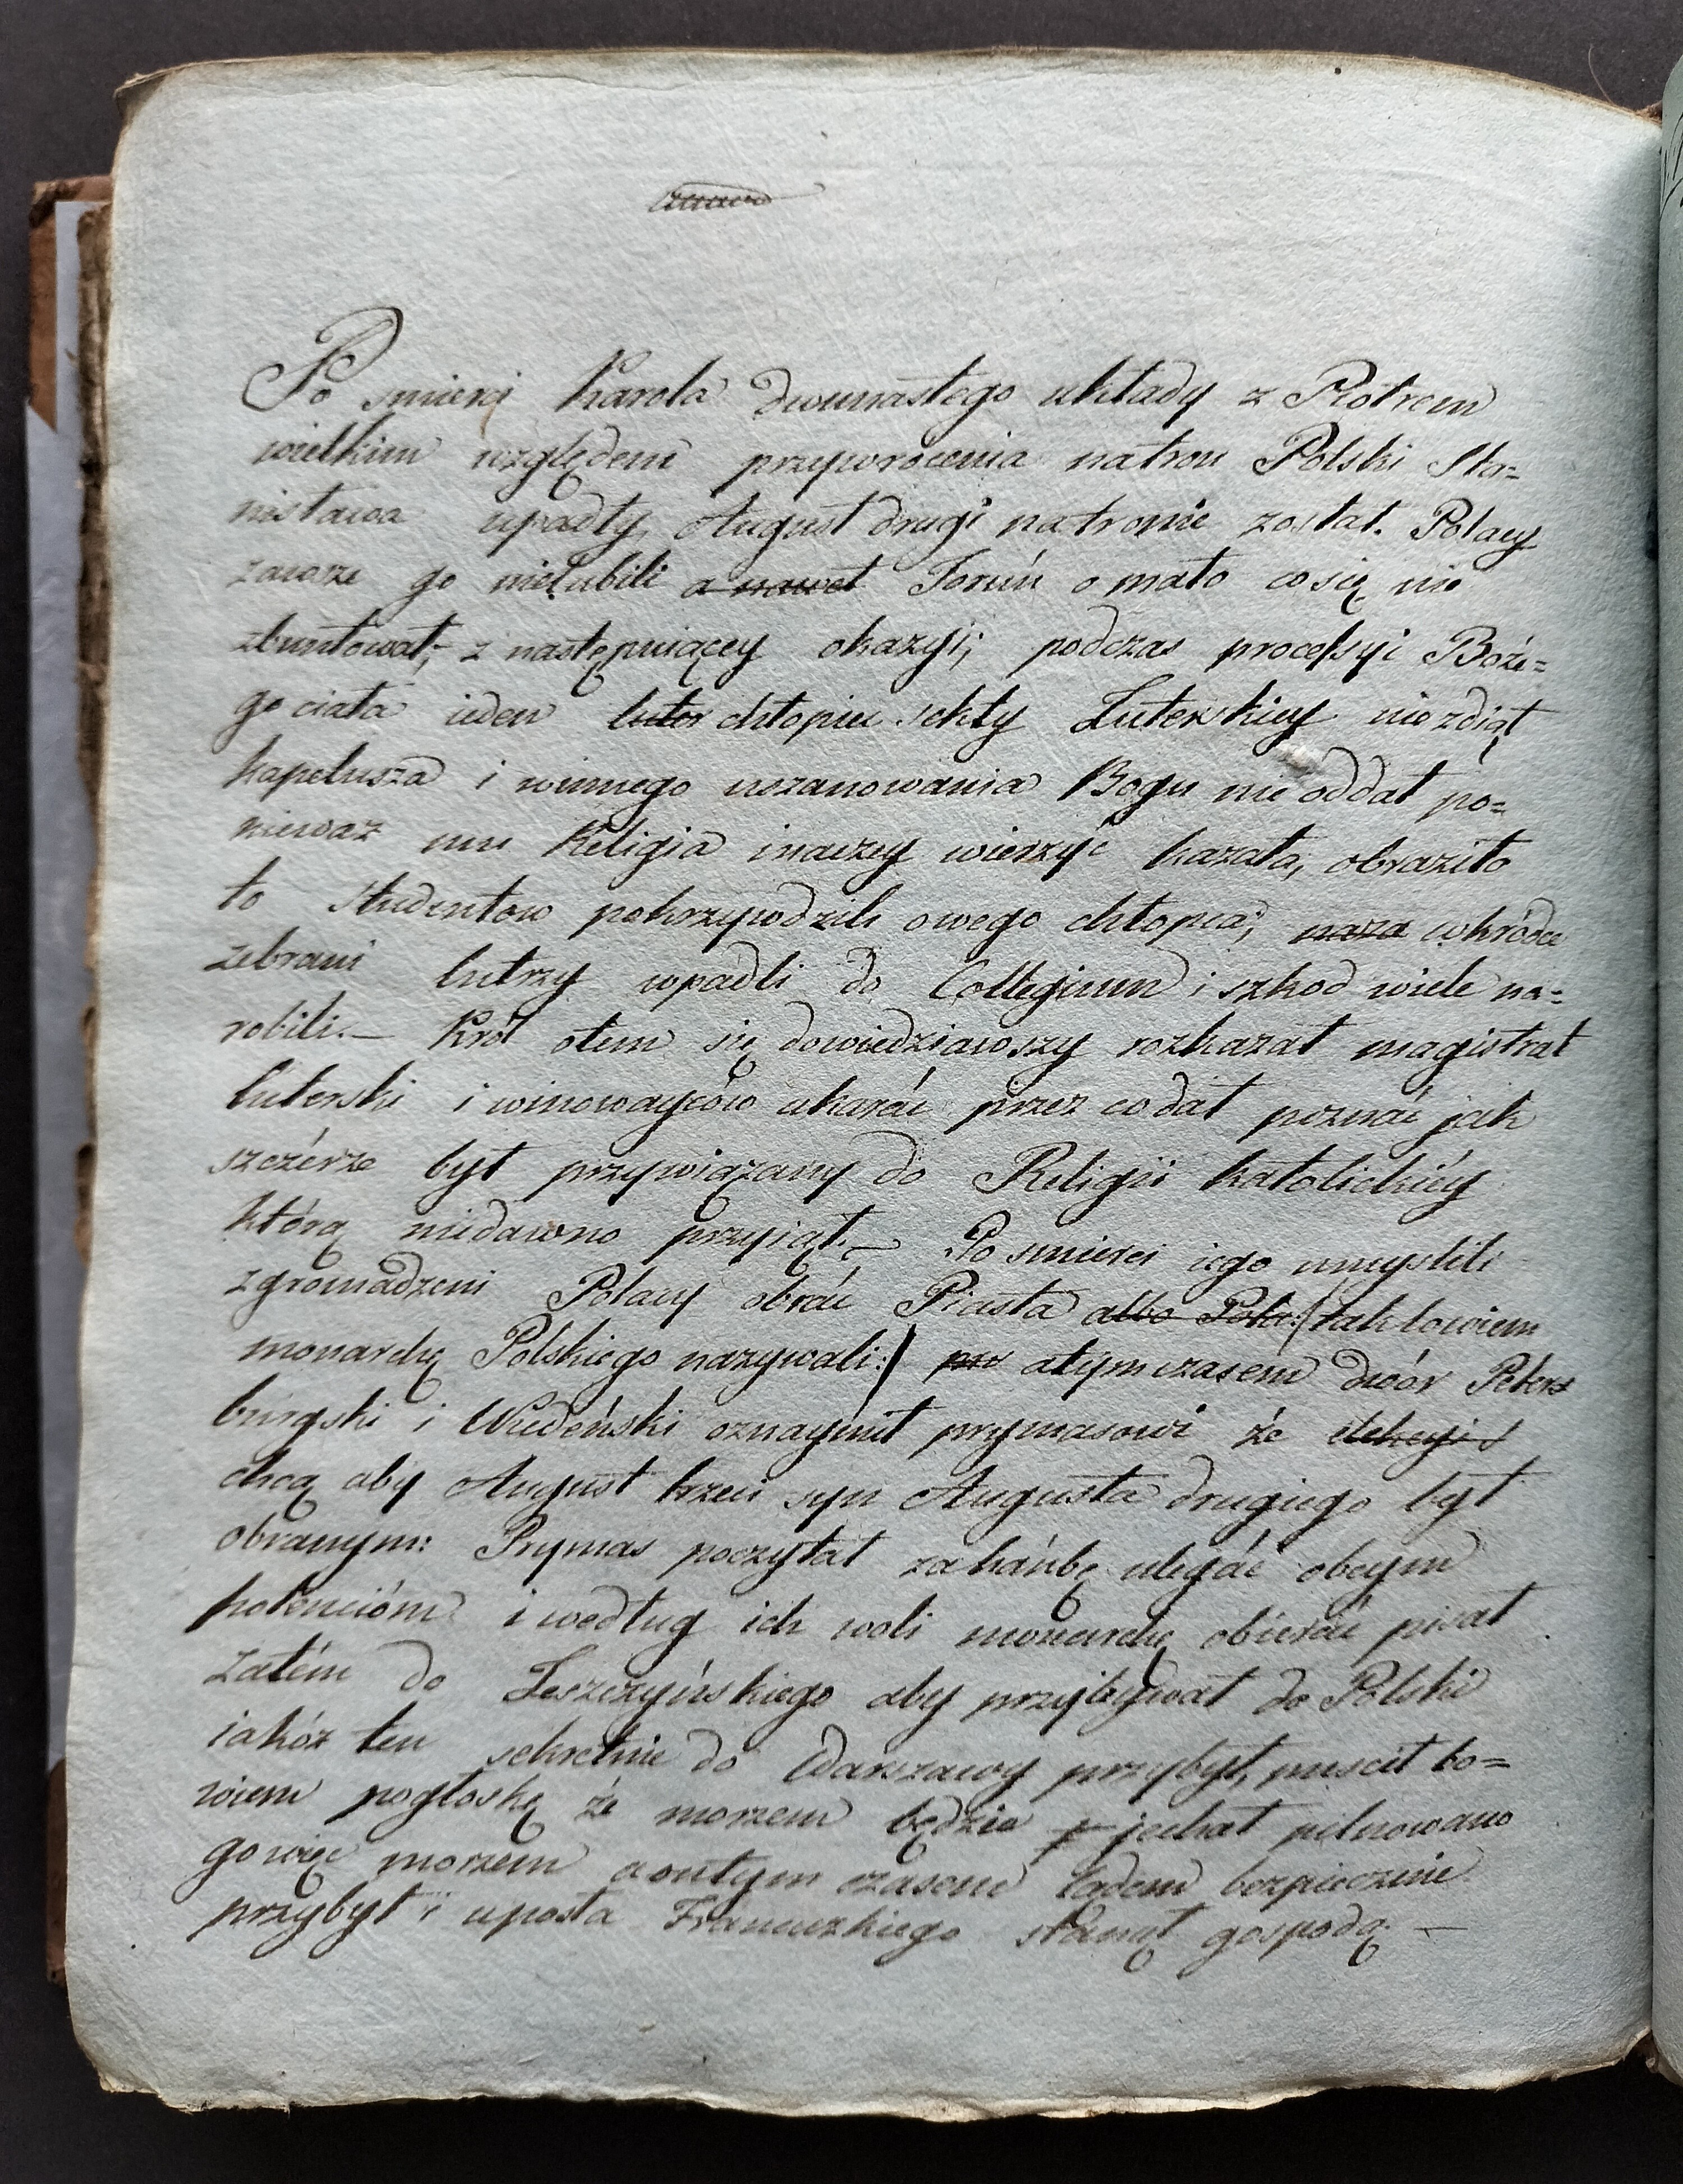 Po smierci Karola dwunastego układy z Piotrem
wielkim względem przywrócenia na tron Polski Sta=
nisława upadły, August drugi na tronie został. Polacy
zawsze go nielubili a nawet Toruń o mało co się nie
zbuntował; z następuiącey okazyi; podczas processyi Boże=
go ciała ieden luter chłopiec sekty Luterskiey nie zdiął
kapelusza i winnego uszanowania Bogu nie oddał po=
nieważ mu Religia inaczey wierzyć kazała, obraziło
to Studentow pokrzywdzili owego chłopca; wkrótce
zebrani lutrzy wpadli do Collegium i szkod wiele na=
robili. — Król otem się dowiedziawszy rozkazał magistrat
luterski i winowayców ukarać przez co dał poznać jak
szczérze był przywiązany do Religii katolickiéy
którą niedawno przyiął. — Po smierci iego umyslili
zgromadzeni Polacy obrać Piasta albo Pola: (tak bowiem
monarchę Polskiego nazywali:) atymczasem dwór Peters
burgski i Wiedeński oznaymił prymasowi że elekcyi
chcą aby August trzeci syn Augusta drugiego był
obranym: Prymas poczytał za hańbę ulegać obcym
potencióm i według ich woli monarchę obierać pisał
zatém do Leszczyńskiego aby przybywał do Polski
iakóż ten sekretnie do Warszawy przybył, puscił bo=
wiem pogłoskę że morzem będzie jechał pilnowano
go więc morzem a ontym czasem lądem bezpiecznie
przybył i uposła Francuzkiego stanął gospodą. —